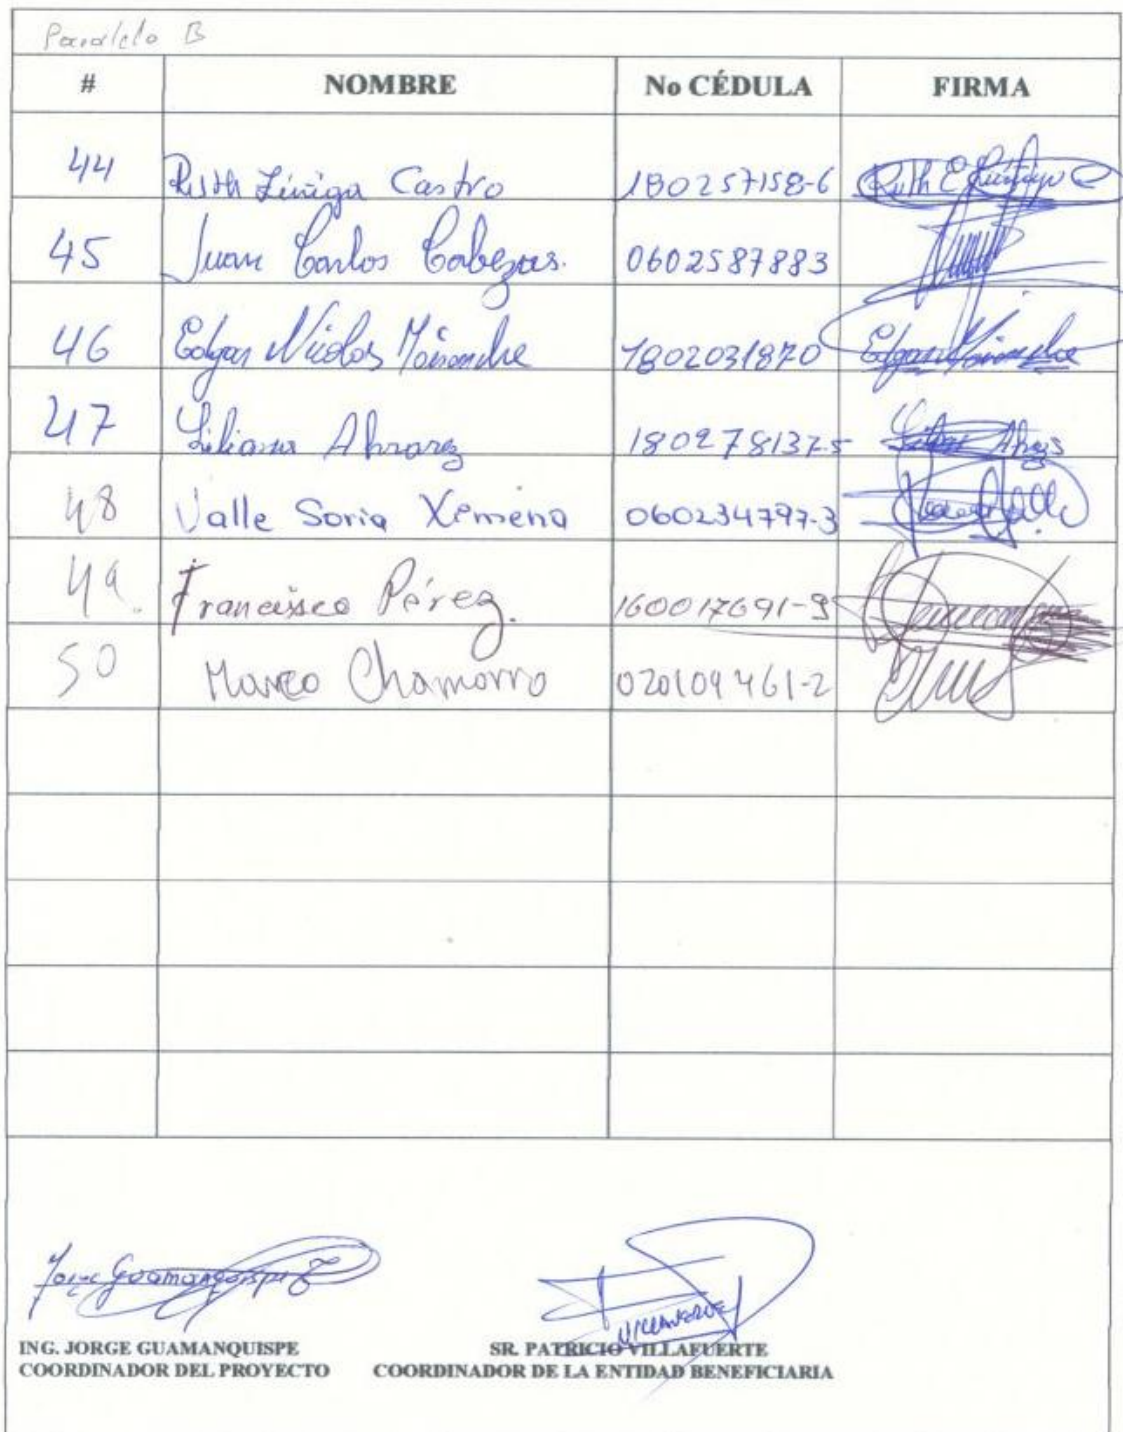 Paralelo B
# NOMBRE No CÉDULA FIRMA
44 Ruth Zúñiga Castro 180257158-6 Ruth E Zúñiga C
45 Juan Carlos Cabezas. 0602587883
46 Edgar Nicolas 1802031870 Edgar
47 Liliana Alvarez 180278137-5
48 Valle Soria Ximena 060234797-3
49. Francisco Pérez. 160017691-9
50 Marco Chamorro 020109461-2
Jorge Guamanquispe
VILLAFUERTE
ING. JORGE GUAMANQUISPE SR. PATRICIO VILLAFUERTE
COORDINADOR DEL PROYECTO COORDINADOR DE LA ENTIDAD BENEFICIARIA